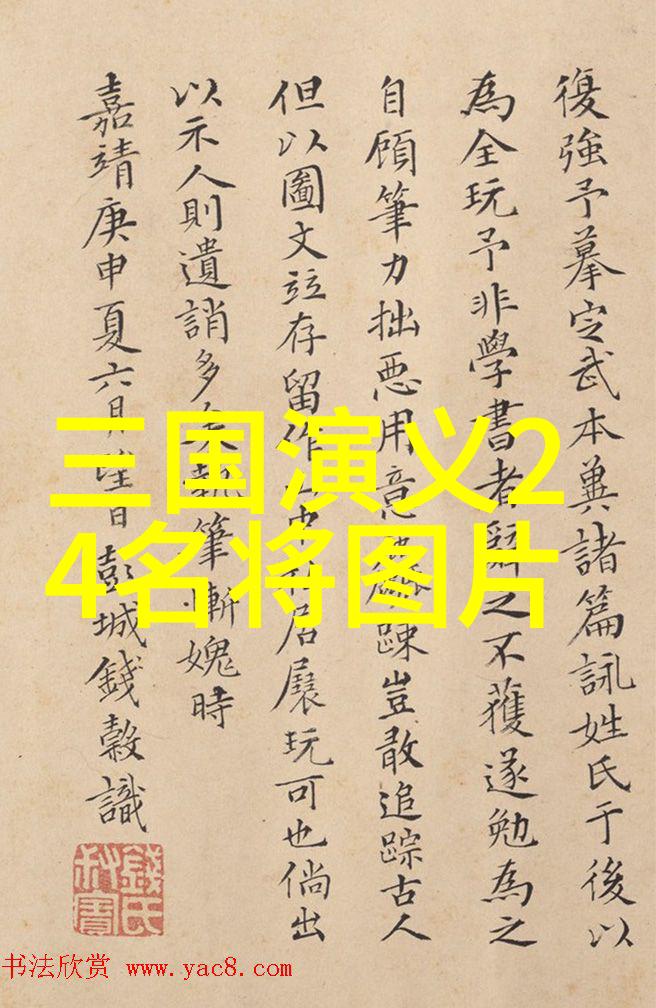 復強予摹定武本兼諸篇詠姓氏于後以
為全玩予非學書者辭之不獲遂勉為之
自顧筆力拙惡用意踈豈敢追踪古人
但以圖文竝存留作居展玩可也倘出
以示人則遺誚多矣執筆慚媿時
嘉靖庚申夏六月望日彭城錢穀識
三国演义2
4名将图片
錢氏
叔寶
书法欣赏 www.yac8.com